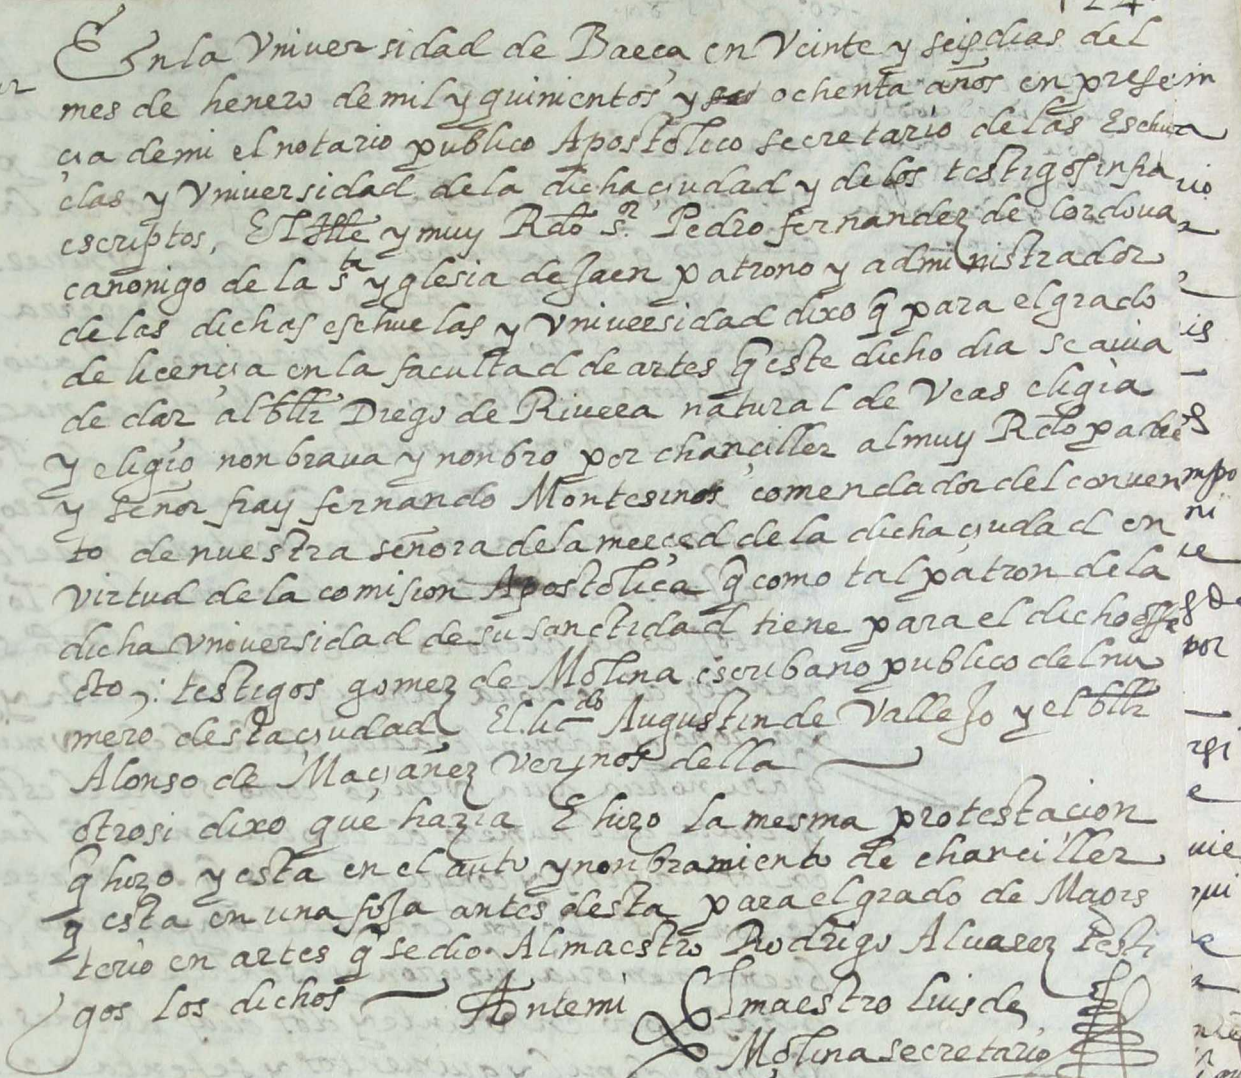 En la Vniversidad de Baeça en Veinte y seis dias del
mes de henero de mil y quinientos y ochenta años en presen
çia de mi el notario publico Apostolico secretario de las Eschu
elas y Vniversidad de la dicha çiudad y de los testigos infra
escriptos, El Ille y muy Rdo sr. Pedro fernandez de cordoua
canonigo de la sta yglesia de Jaen patrono y administrador
de las dichas eschuelas y Vniversidad dixo q para el grado
de licençia en la facultad de artes q este dicho dia se auia
de dar al bllr Diego de Riuera natural de Veas eligia
y eligio nonbraua y nonbro por chançiller al muy Rdo padre
y señor fray fernando Montesinos comendador del conuen
to de nuestra señora de la merçed de la dicha çiudad en
virtud de la comision Apostolica q como tal patron de la
dicha vniuersidad de su sanctidad tiene para el dicho effe
cto, testigos gomez de Molina escribano publico del nu
mero desta çiudad El licdo Augustin de Vallejo y el bllr
Alonso de Maçañez Vezinos della
otrosi dixo que hazia E hizo la mesma protestacion
q hizo y esta en el auto y nonbramiento de chanciller
q esta en una foja antes desta para el grado de Magis
terio en artes q se dio Al maestro Rodrigo Aluarez testi
gos los dichos Ante mi El maestro luis de
Molina secretario